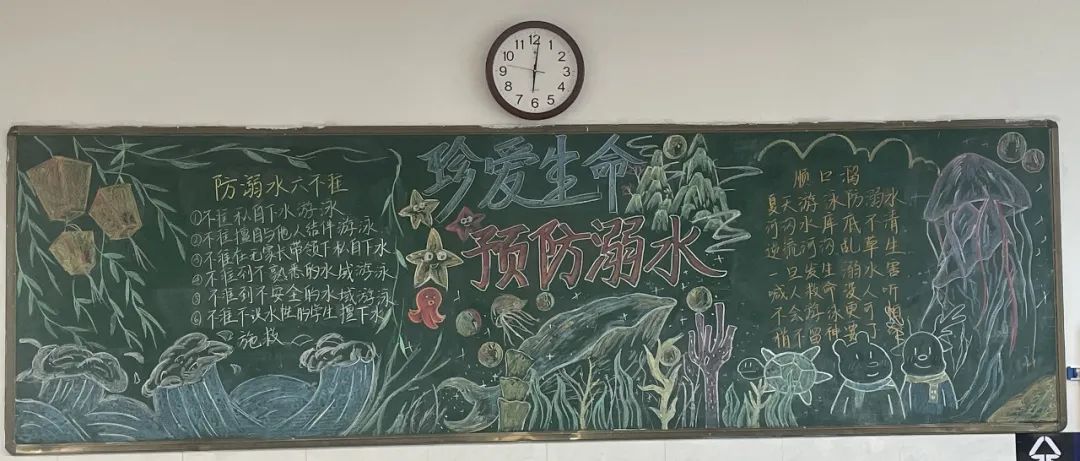 珍爱生命
预防溺水
防溺水六不准
①不准私自下水游泳
②不准擅自与他人结伴游泳
③不准在无家长带领下私自下水
④不准到不熟悉的水域游泳
⑤不准到不安全的水域游泳
⑥不准不识水性的学生擅下水
施救
顺口溜
夏天游泳防溺水
河沟水库底不清
逆流河沟乱草生
一旦发生溺水害
喊人救命没人听
不会游泳更可
稍不留神
12
1
2
3
4
5
6
7
8
9
10
11